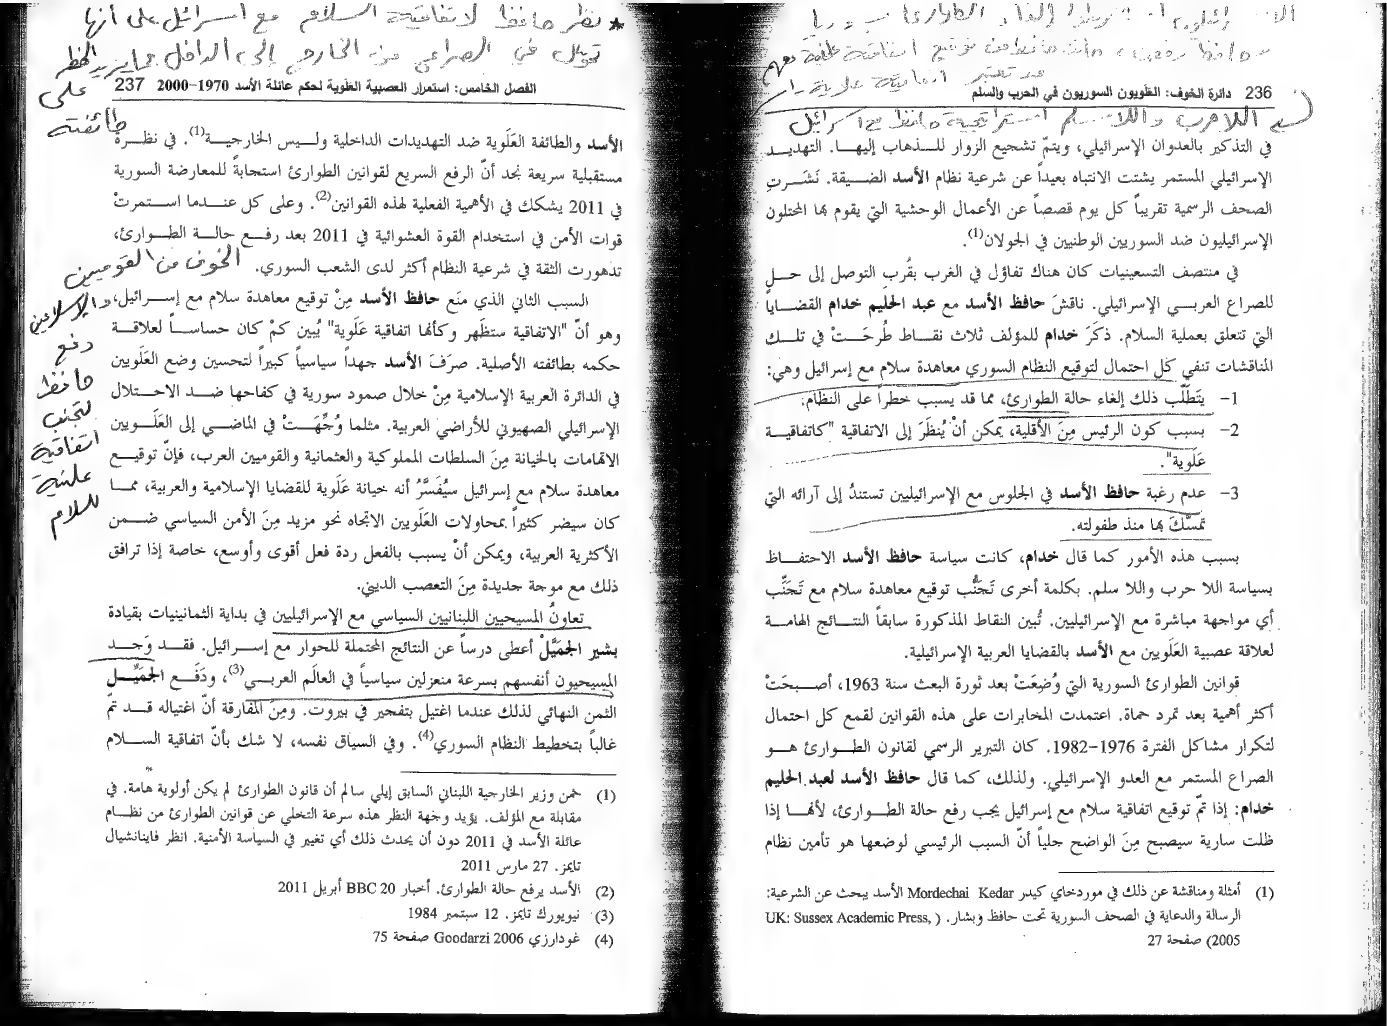 236 دائرة الخوف: العَلَويون السوريون في الحرب والسلم
اللاحرب واللاسلم استراتيجية حافظ مع اسرائيل
في التذكير بالعدوان الإسرائيلي، ويتمّ تشجيع الزوار للـذهاب إليهـا. التهديـد
الإسرائيلي المستمر يشتت الانتباه بعيداً عن شرعية نظام الأسد الضيقة. نَشَـرتِ
الصحف الرسمية تقريباً كل يوم قصصاً عن الأعمال الوحشية التي يقوم بها المحتلون
الإسرائيليون ضد السوريين الوطنيين في الجولان(1).
في منتصف التسعينيات كان هناك تفاؤل في الغرب بقُربِ التوصل إلى حـلٍ
للصراع العربـي الإسرائيلي. ناقشَ حافظ الأسد مع عبد الحليم خدام القضـايا
التي تتعلق بعملية السلام. ذكَرَ خدام للمؤلف ثلاث نقـاط طُرحَـتْ في تلـك
المناقشات تنفي كل احتمال لتوقيع النظام السوري معاهدة سلام مع إسرائيل وهي:
1- يَتَطلَّب ذلك إلغاء حالة الطوارئ، مما قد يسبب خطراً على النظام.
2- بسبب كون الرئيس مِنَ الأقلية، يمكن أنْ يُنظَرَ إلى الاتفاقية "كاتفاقيـة
عَلَوية".
3- عدم رغبة حافظ الأسد في الجلوس مع الإسرائيليين تستندُ إلى آرائه التي
تمسَّكَ بها منذ طفولته.
بسبب هذه الأمور كما قال خدام، كانت سياسة حافظ الأسد الاحتفـاظ
بسياسة اللا حرب واللا سلم. بكلمة أخرى تَجَنُّب توقيع معاهدة سلام مع تَجَنُّب
أي مواجهة مباشرة مع الإسرائيليين. تُبين النقاط المذكورة سابقاً النتـائج الهامـة
لعلاقة عصبية العَلَويين مع الأسد بالقضايا العربية الإسرائيلية.
قوانين الطوارئ السورية التي وُضِعَتْ بعد ثورة البعث سنة 1963، أصـبحَتْ
أكثر أهمية بعد تمرد حماة. اعتمدت المخابرات على هذه القوانين لقمع كل احتمال
لتكرار مشاكل الفترة 1976-1982. كان التبرير الرسمي لقانون الطـوارئ هـو
الصراع المستمر مع العدو الإسرائيلي. ولذلك، كما قال حافظ الأسد لعبد الحليم
خدام: إذا تمّ توقيع اتفاقية سلام مع إسرائيل يجب رفع حالة الطـوارئ، لأنهـا إذا
ظلت سارية سيصبح مِنَ الواضح جلياً أنّ السبب الرئيسي لوضعها هو تأمين نظام
(1) أمثلة ومناقشة عن ذلك في موردخاي كيدر Mordechai Kedar الأسد يبحث عن الشرعية:
الرسالة والدعاية في الصحف السورية تحت حافظ وبشار. ( UK: Sussex Academic Press,
2005) صفحة 27
* نظر حافظ لاتفاقية السلام مع اسرائيل على أنها
في الصراع من الخارج إلى الداخل مما يزيد الخطر
على
طائفته
الفصل الخامس: استمرار العصبية العَلَوية لحكم عائلة الأسد 1970-2000 237
الأسد والطائفة العَلَوية ضد التهديدات الداخلية ولـيس الخارجيـة(1). في نظـرة
مستقبلية سريعة نجد أنّ الرفع السريع لقوانين الطوارئ استجابةً للمعارضة السورية
في 2011 يشكك في الأهمية الفعلية لهذه القوانين(2). وعلى كل عنـدما اسـتمرتْ
قوات الأمن في استخدام القوة العشوائية في 2011 بعد رفـع حالـة الطـوارئ،
تدهورت الثقة في شرعية النظام أكثر لدى الشعب السوري.
الخوف من القوميين
والإسلاميين
دفع
حافظ
لتجنب
اتفاقية
علنية
للسلام
السبب الثاني الذي منَع حافظ الأسد مِنْ توقيع معاهدة سلام مع إسـرائيل،
وهو أنّ "الاتفاقية ستظهر وكأنها اتفاقية عَلَوية" يُبين كمْ كان حساسـاً لعلاقـة
حكمه بطائفته الأصلية. صرَفَ الأسد جهداً سياسياً كبيراً لتحسين وضع العَلَويين
في الدائرة العربية الإسلامية مِنْ خلال صمود سورية في كفاحها ضـد الاحـتلال
الإسرائيلي الصهيوني للأراضي العربية. مثلما وُجِّهَـتْ في الماضـي إلى العَلَـويين
الاتهامات بالخيانة مِنَ السلطات المملوكية والعثمانية والقوميين العرب، فإنّ توقيـع
معاهدة سلام مع إسرائيل سيُفَسَّرُ أنه خيانة عَلَوية للقضايا الإسلامية والعربية، ممـا
كان سيضر كثيراً بمحاولات العَلَويين الاتجاه نحو مزيد مِنَ الأمن السياسي ضـمن
الأكثرية العربية، ويمكن أنْ يسبب بالفعل ردة فعل أقوى وأوسع، خاصة إذا ترافق
ذلك مع موجة جديدة مِنَ التعصب الديني.
تعاونُ المسيحيين اللبنانيين السياسي مع الإسرائيليين في بداية الثمانينيات بقيادة
بشير الجمَيَّلْ أعطى درساً عن النتائج المحتملة للحوار مع إسـرائيل. فقـد وَجـد
المسيحيون أنفسهم بسرعة منعزلين سياسياً في العالَم العربـي(3)، ودَفَـع الجمَيَّـل
الثمن النهائي لذلك عندما اغتيل بتفجير في بيروت. ومِنَ المُفارقة أنّ اغتياله قـد تمّ
غالباً بتخطيط النظام السوري(4). وفي السياق نفسه، لا شك بأنّ اتفاقية السـلام
(1) خمن وزير الخارجية اللبناني السابق إيلي سالم أن قانون الطوارئ لم يكن أولوية هامة. في
مقابلة مع المؤلف. يؤيد وجهة النظر هذه سرعة التخلي عن قوانين الطوارئ من نظـام
عائلة الأسد في 2011 دون أن يحدث ذلك أي تغيير في السياسة الأمنية. انظر فاينانشيال
تايمز. 27 مارس 2011
(2) الأسد يرفع حالة الطوارئ. أخبار BBC 20 أبريل 2011
(3) نيويورك تايمز. 12 سبتمبر 1984
(4) غودارزي Goodarzi 2006 صفحة 75